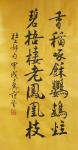 香稻啄餘鸚鵡粒
碧梧棲老鳳凰枝